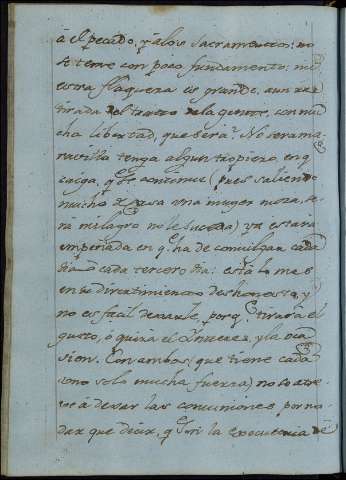 á el pecado, y á los Sacramentos: no
se teme con poco fundamento: nu
estra flaqueza es grande, aun re
tirada del trato de la gente, con mu
cha libertad, que será? No sera ma
ravilla tenga algun tropiezo, en q
caiga, q. le continue (pues saliendo
mucho de casa una muger moza, se
ria milagro no le suceda) ya estará
empeñada en q. ha de comulgar cada
dia ó cada tercero dia: está la mes
en su divertimiento deshonesto, y
no es facil dexarle, porq. tirará el
gusto, ó quizá el interes, y la oca
sion. Con ambos (que tiene cada
uno solo mucha fuerza) no se atre
ve á dexar las comuniones por no
dar que decir, q. la frecuencia de